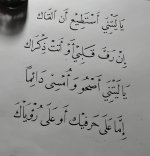 يَا لَيْتَنِي أَسْتَطِيعُ أَنْ أَلْقَاكَ
إِنْ رَفَّ قَلْبِي أَوْ نَمَتْ ذِكْرَاكَ
يَا لَيْتَنِي أَصْحُو وَأُمْسِي دَائِمًا
إِمَّا عَلَى حَرْفَيْكَ أَوْ عَلَى رُؤْيَاكَ